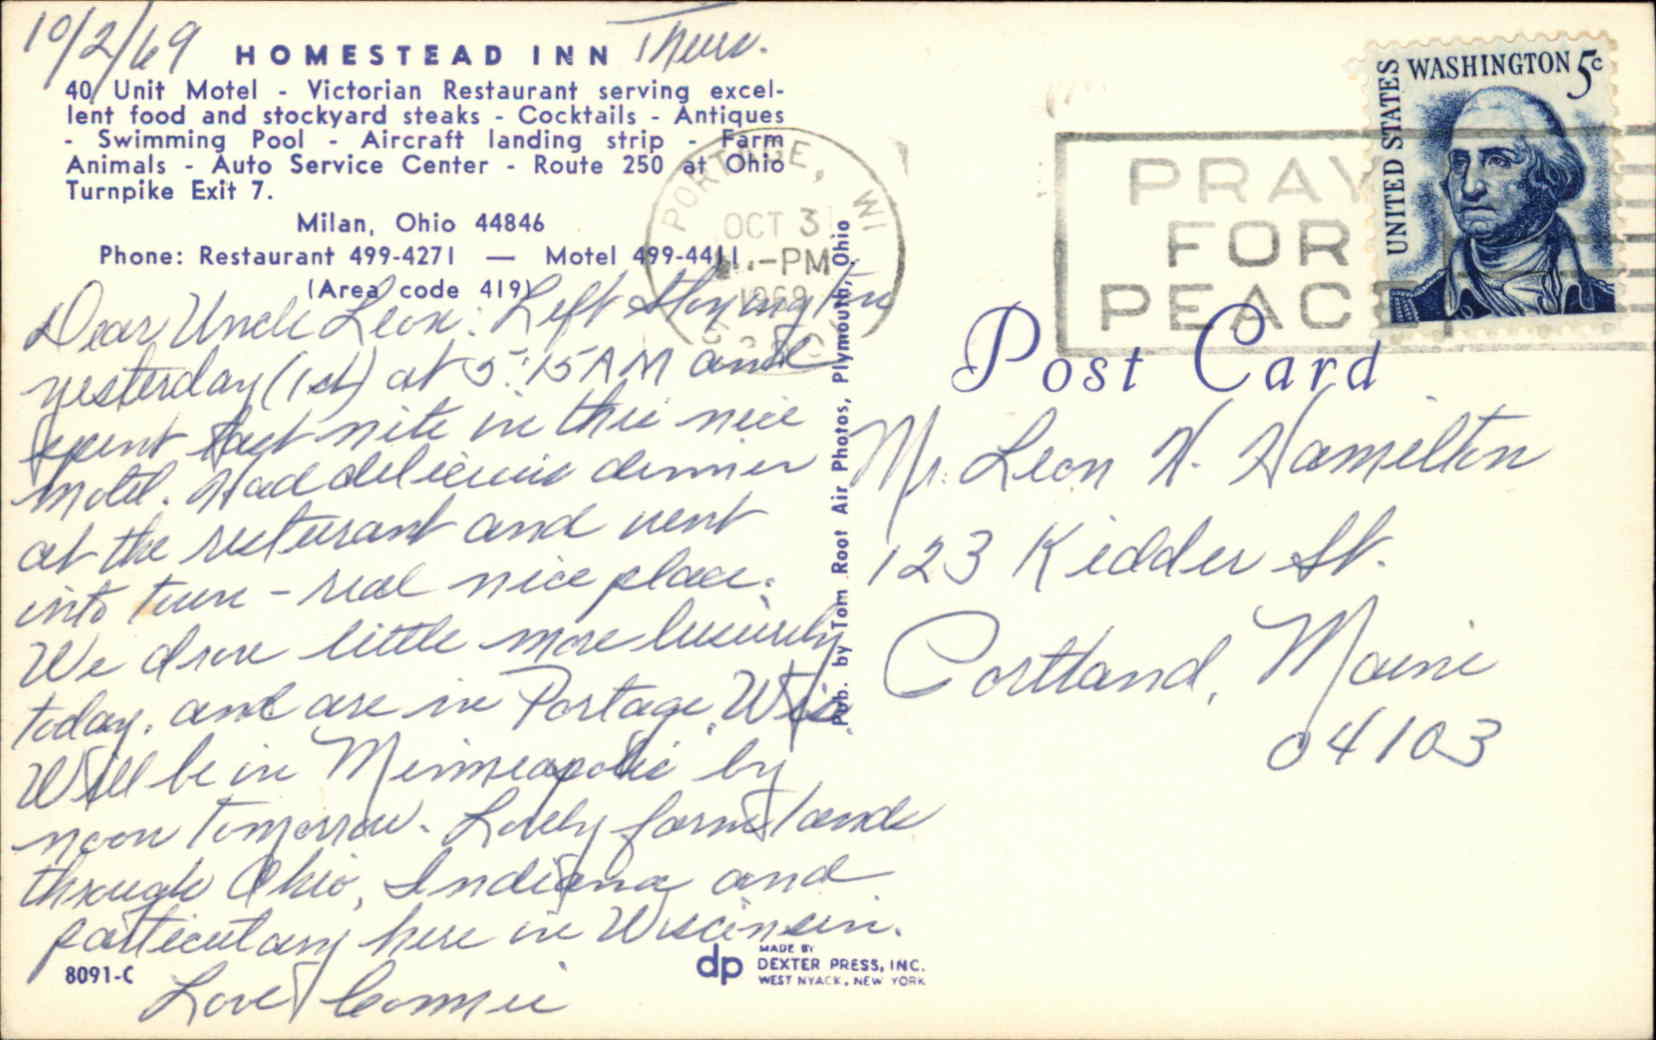 10/2/69 Thurs.
HOMESTEAD INN
40 Unit Motel - Victorian Restaurant serving excel-
lent food and stockyard steaks - Cocktails - Antiques
- Swimming Pool - Aircraft landing strip - Farm
Animals - Auto Service Center - Route 250 at Ohio
Turnpike Exit 7.
Milan, Ohio 44846
Phone: Restaurant 499-4271 — Motel 499-4411
(Area code 419)
Dear Uncle Leon: Left Stonington
yesterday (1st) at 5:15 AM and
spent last nite in this nice
motel. Had delicious dinner
at the resturant and went
into town - real nice place.
We drove little more leisurely
today, and are in Portage, Wis.
Will be in Minneapolis by
noon tomorrow. Lovely farm lands
through Ohio, Indiana and
particularly here in Wisconsin.
Love Connie
8091-C
Pub. by Tom Root Air Photos, Plymouth, Ohio
dp
MADE BY
DEXTER PRESS, INC.
WEST NYACK, NEW YORK
PORTAGE, WI
OCT 3
PM
1969
PRAY
FOR
PEACE
UNITED STATES
WASHINGTON 5c
Post Card
Mr. Leon H. Hamilton
123 Kidder St.
Portland, Maine
04103